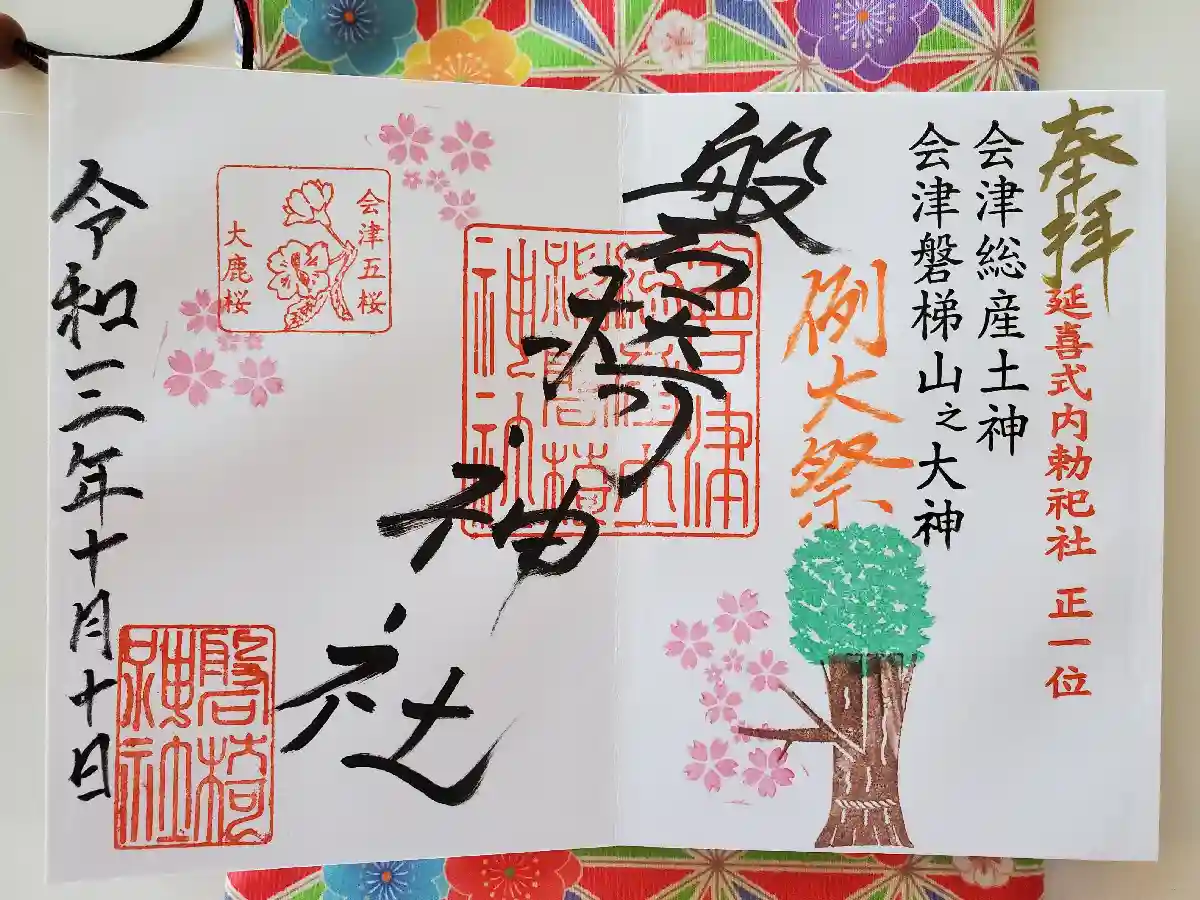 奉拝
延喜式内勅祀社 正一位
会津総産土神
会津磐梯山之大神
例大祭
磐椅神社
会津五桜
大鹿桜
磐椅神社
令和三年十月十日